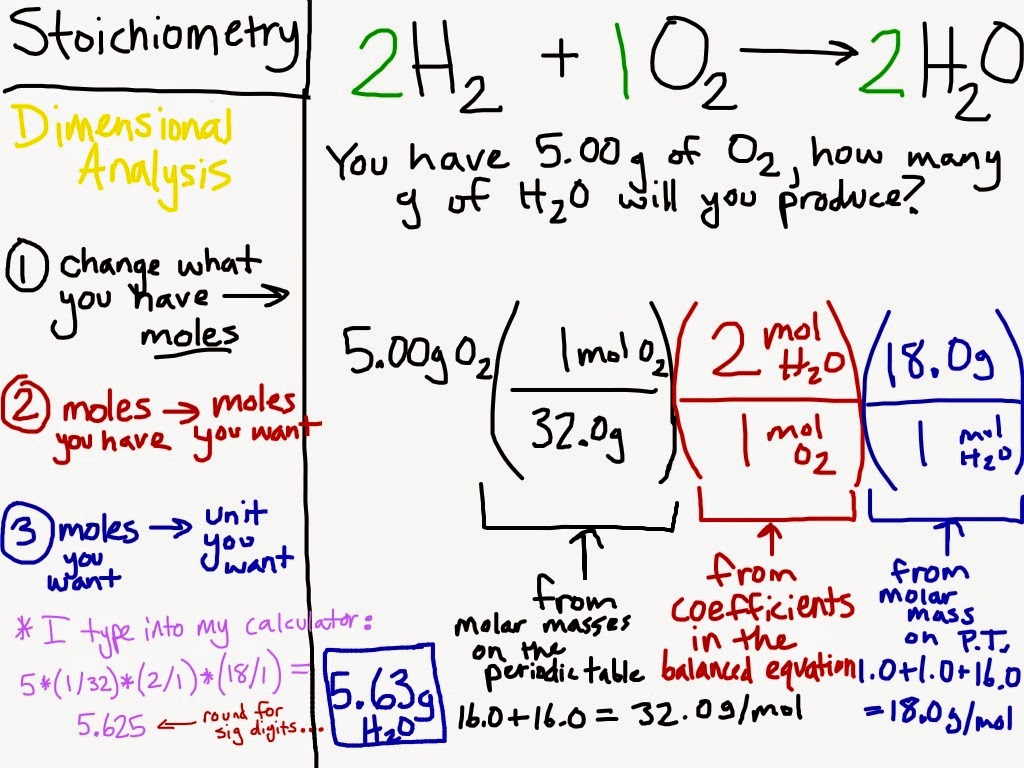 Stoichiometry
Dimensional
Analysis
① change what
you have →
moles
② moles → moles
you have you want
③ moles → unit
you you
want want
* I type into my calculator:
5*(1/32)*(2/1)*(18/1) =
5.625 ← round for
sig digits...
2H₂ + 1O₂ → 2H₂O
You have 5.00g of O₂, how many
g of H₂O will you produce?
5.00g O₂ (1 mol O₂ / 32.0g) (2 mol H₂O / 1 mol O₂) (18.0g / 1 mol H₂O)
from
molar masses
on the
periodic table
16.0+16.0 = 32.0g/mol
from
coefficients
in the
balanced equation
from
molar
mass
on P.T.
1.0+1.0+16.0
=18.0g/mol
5.63g
H₂O